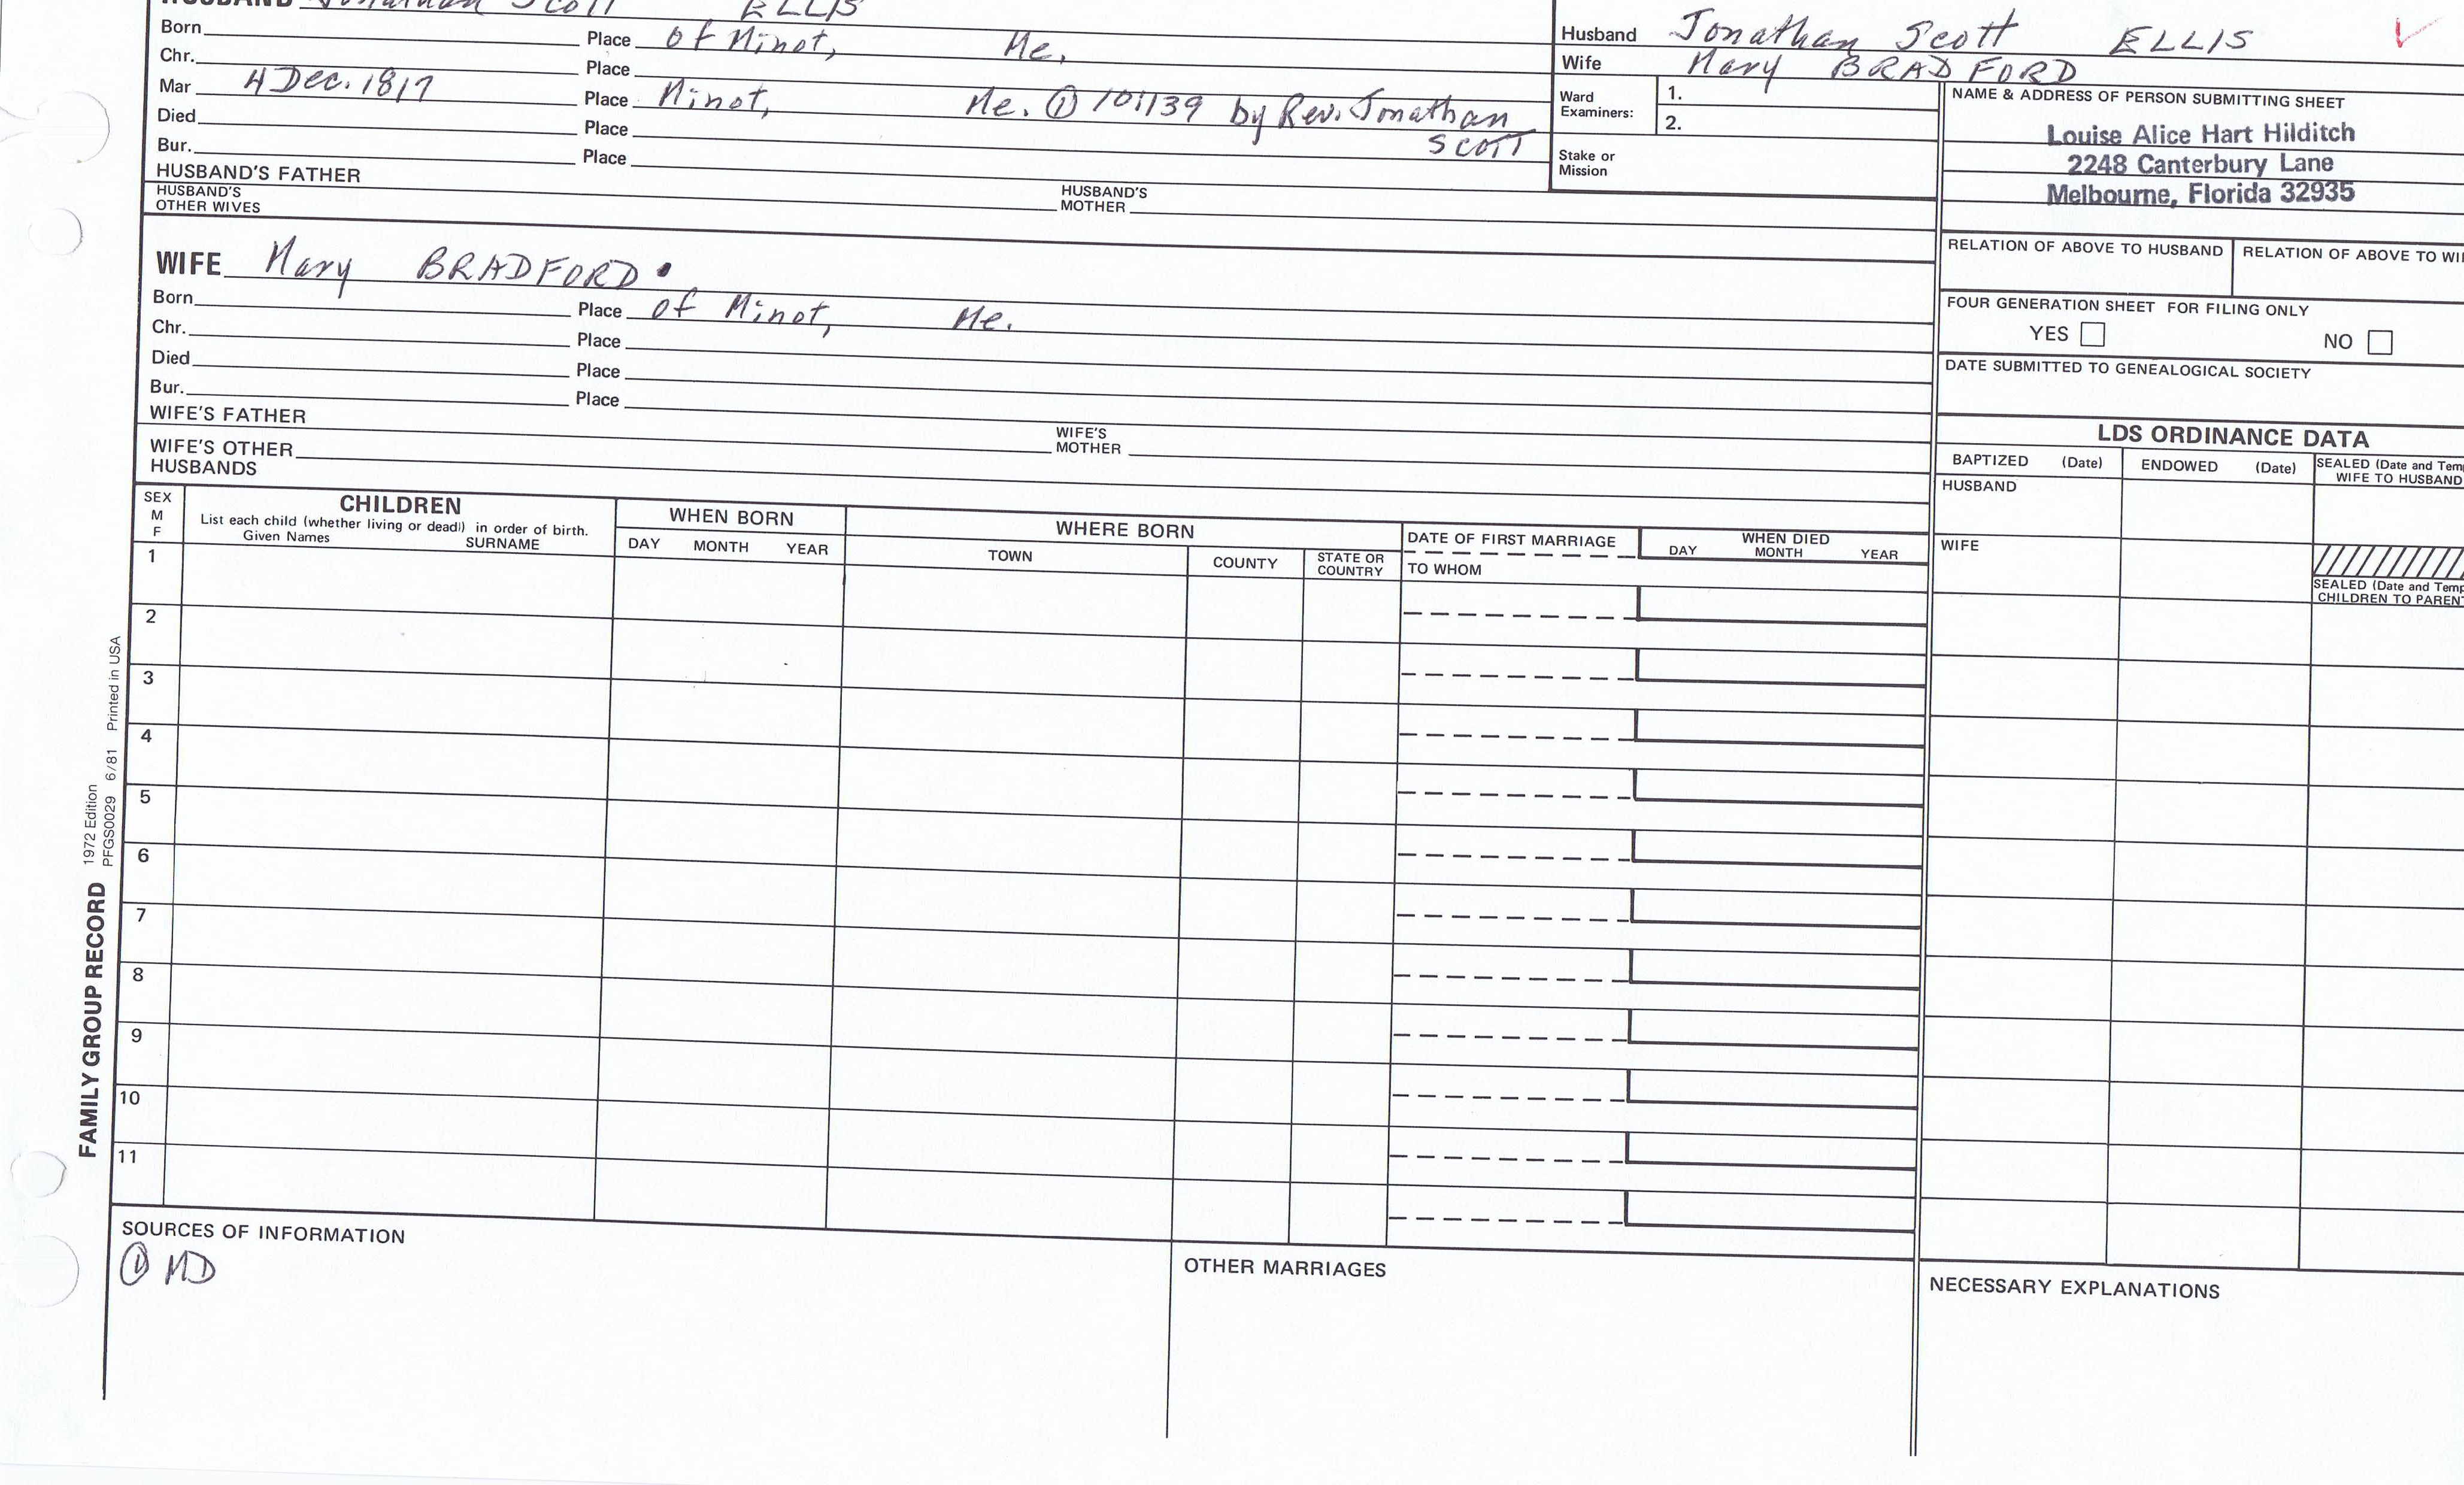 HUSBAND Jonathan Scott ELLIS
Born Place of Minot, Me.
Chr. Place
Mar 4 Dec. 1817 Place Minot, Me. ① 10:139 by Rev. Jonathan Scott
Died Place
Bur. Place
HUSBAND'S FATHER HUSBAND'S MOTHER
HUSBAND'S OTHER WIVES
Husband Jonathan Scott ELLIS ✓
Wife Mary BRADFORD
Ward Examiners: 1.
2.
Stake or Mission
NAME & ADDRESS OF PERSON SUBMITTING SHEET
Louise Alice Hart Hilditch
2248 Canterbury Lane
Melbourne, Florida 32935
RELATION OF ABOVE TO HUSBAND RELATION OF ABOVE TO WI
FOUR GENERATION SHEET FOR FILING ONLY
YES NO
DATE SUBMITTED TO GENEALOGICAL SOCIETY
WIFE Mary BRADFORD
Born Place of Minot, Me.
Chr. Place
Died Place
Bur. Place
WIFE'S FATHER WIFE'S MOTHER
WIFE'S OTHER HUSBANDS
LDS ORDINANCE DATA
BAPTIZED (Date) ENDOWED (Date) SEALED (Date and Temp
WIFE TO HUSBAND
HUSBAND
WIFE
SEALED (Date and Temp
CHILDREN TO PARENT
SEX M F
CHILDREN
List each child (whether living or dead) in order of birth.
Given Names SURNAME
WHEN BORN
DAY MONTH YEAR
WHERE BORN
TOWN COUNTY STATE OR COUNTRY
DATE OF FIRST MARRIAGE
TO WHOM
WHEN DIED
DAY MONTH YEAR
1
2
3
4
5
6
7
8
9
10
11
FAMILY GROUP RECORD
1972 Edition
PFGS0029 6/81 Printed in USA
SOURCES OF INFORMATION
① MD
OTHER MARRIAGES
NECESSARY EXPLANATIONS